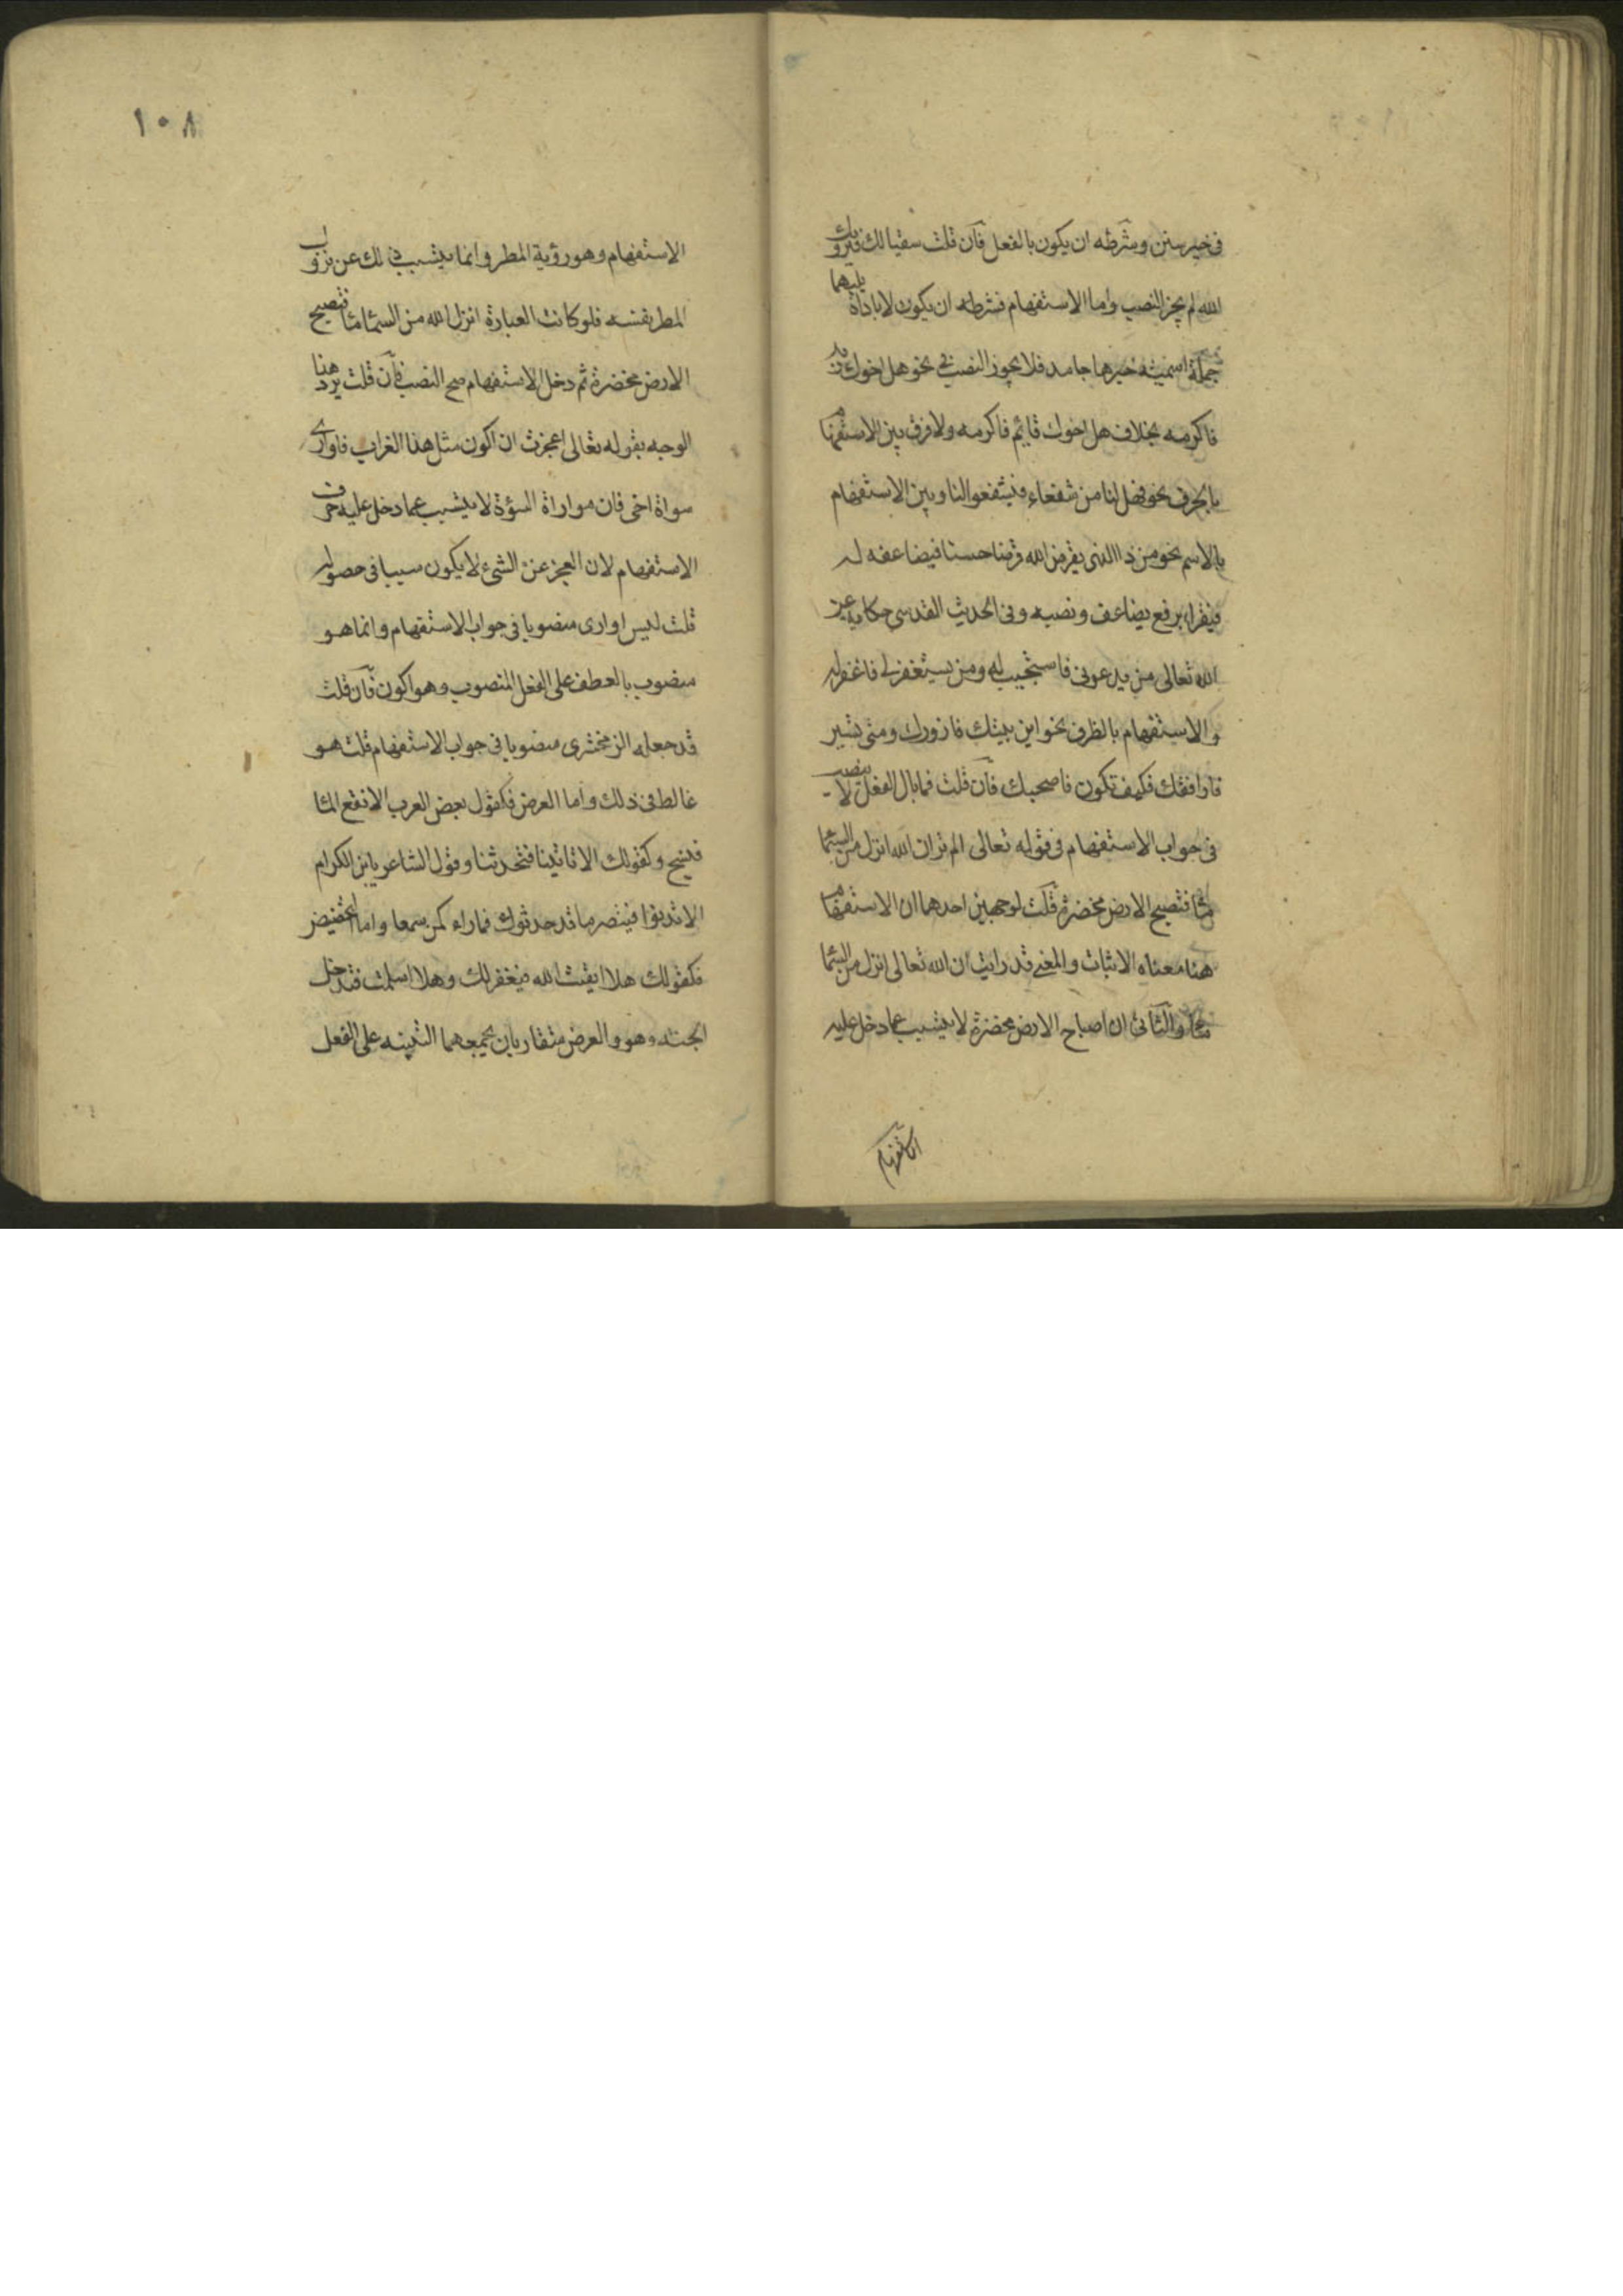 في خير سنن وشرطه ان يكون بالفعل فان قلت سقيا لك فيرويك
الله لم يجز النصب واما الاستفهام فشرطه ان يكون لا باداة يليهما
جملة اسمية خبرها جامد فلا يجوز النصب في نحو هل اخوك زيد
فاكرمه بخلاف هل اخوك قايم فاكرمه ولا فرق بين الاستفهام
بالحرف نحو فهل لنا من شفعاء فيشفعوا لنا وبين الاستفهام
بالاسم نحو من ذا الذى يقرض الله قرضا حسنا فيضاعفه له
فيقرا برفع يضاعف ونصبه وفى الحديث القدسى حكاية عن
الله تعالى من يدعونى فاستجيب له ومن يستغفرنى فاغفر له
والاستفهام بالظرف نحو اين بيتك فازورك ومتى تسير
فارافقك فكيف تكون فاصحبك فان قلت فما بال الفعل لا ينصب
فى جواب الاستفهام فى قوله تعالى الم تر ان الله انزل من السما
مآ فتصبح الارض مخضرة قلت لوجهين احدهما ان الاستفهام
هنا معناه الاثبات والمعنى قد رايت ان الله تعالى انزل من السما
مآ والثانى ان اصباح الارض مخضرة لا يتسبب عما دخل عليه
الاستفهام
١٠٨
الاستفهام وهو رؤية المطر وانما يتسبب ذلك عن نزول
المطر نفسه فلو كانت العبارة انزل الله من السما مآ فتصبح
الارض مخضرة ثم دخل الاستفهام صح النصب فان قلت يرد هذا
الوجه بقوله تعالى اعجزت ان اكون مثل هذا الغراب فاوارى
سواة اخى فان مواراة السؤة لا يتسبب عما دخل عليه حرف
الاستفهام لان العجز عن الشئ لا يكون سببا فى حصوله
قلت ليس اوارى منصوبا فى جواب الاستفهام وانما هو
منصوب بالعطف على الفعل المنصوب وهو اكون فان قلت
قد جعله الزمخشرى منصوبا فى جواب الاستفهام قلت هو
غالط فى ذلك واما العرض فكقول بعض العرب الا تقع المآ
فتسبح وكقولك الا تاتينا فتحدثنا وقول الشاعر يا ابن الكرام
الا تدنوا فتبصر ما قد حدثوك فما راء كمن سمعا واما التحضيض
فكقولك هلا اتقيت الله فيغفر لك وهلا اسلمت فتدخل
الجنة وهو والعرض متقاربان يجمعهما التنبيه على الفعل